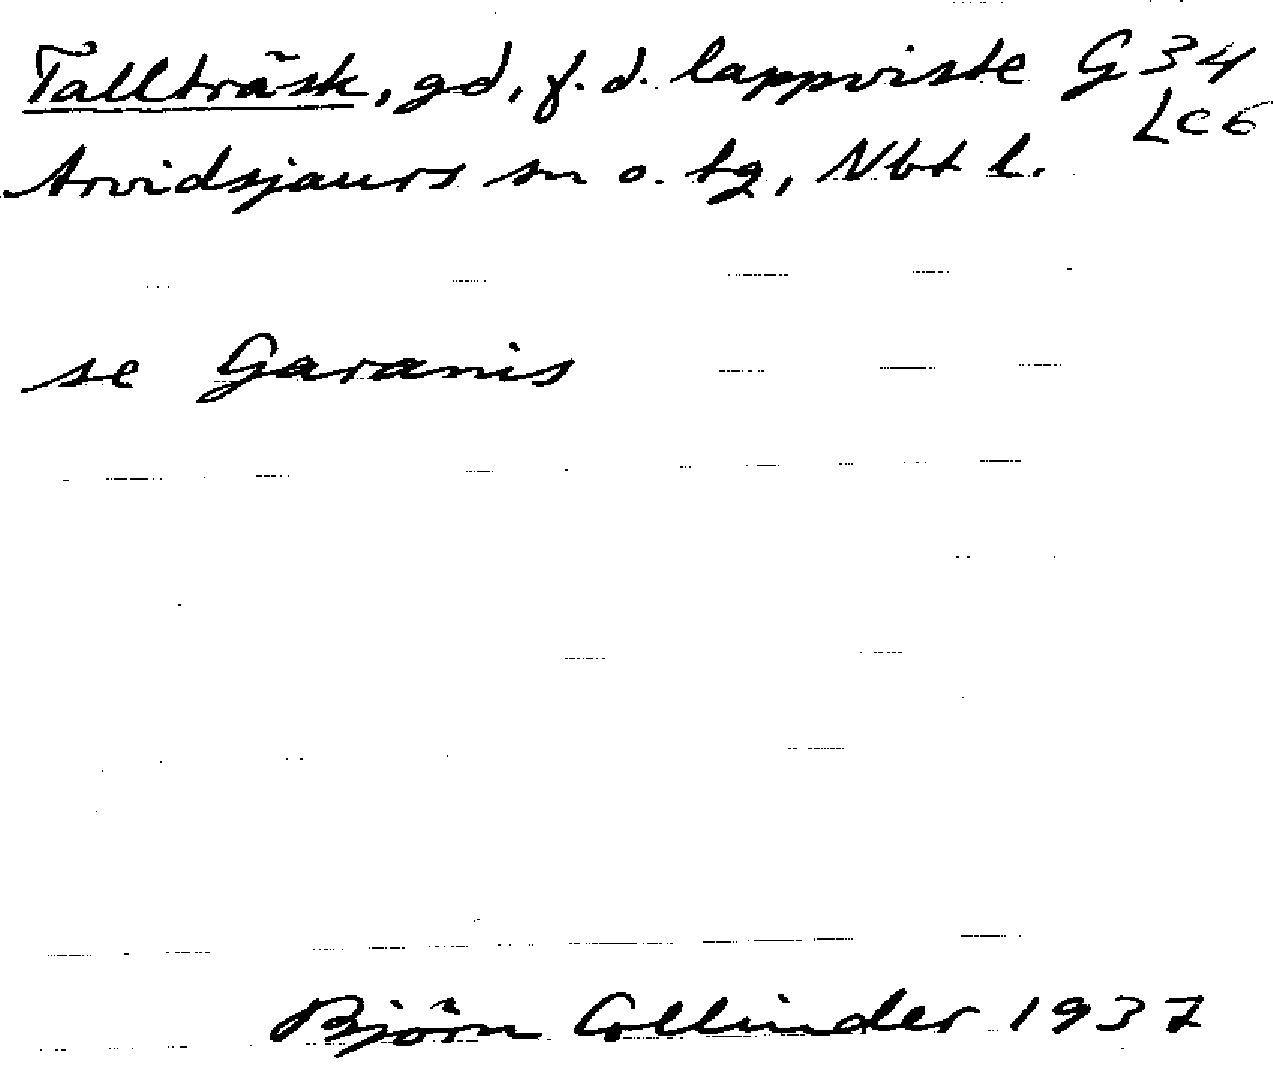 Tallträsk, gd, f.d. lappviste G 34
L c 6
Arvidsjaurs sn o. tg, Nbt l.
se Garanis
Björn Collinder 1937